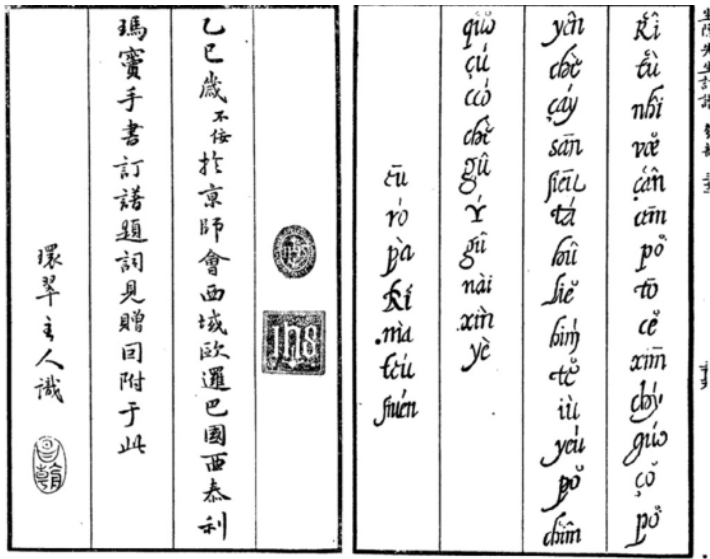 坐隱先生訂譜
Kî tù nhî vœ̌ çân cēm pǒ tō cě xīm chý guó çǒ pǒ
yên chě çáy sān siēu tá hû siě hím tě iù yeú pǒ chīm
qiǔo çú ccó chě gû Ý gû nài xìn yè
ēu rò pà Kí mà téu siuén
IHS
乙巳歲不佞於京師會西域歐邏巴國西泰利
瑪竇手書訂譜題詞見贈囙附于此
環翠主人識